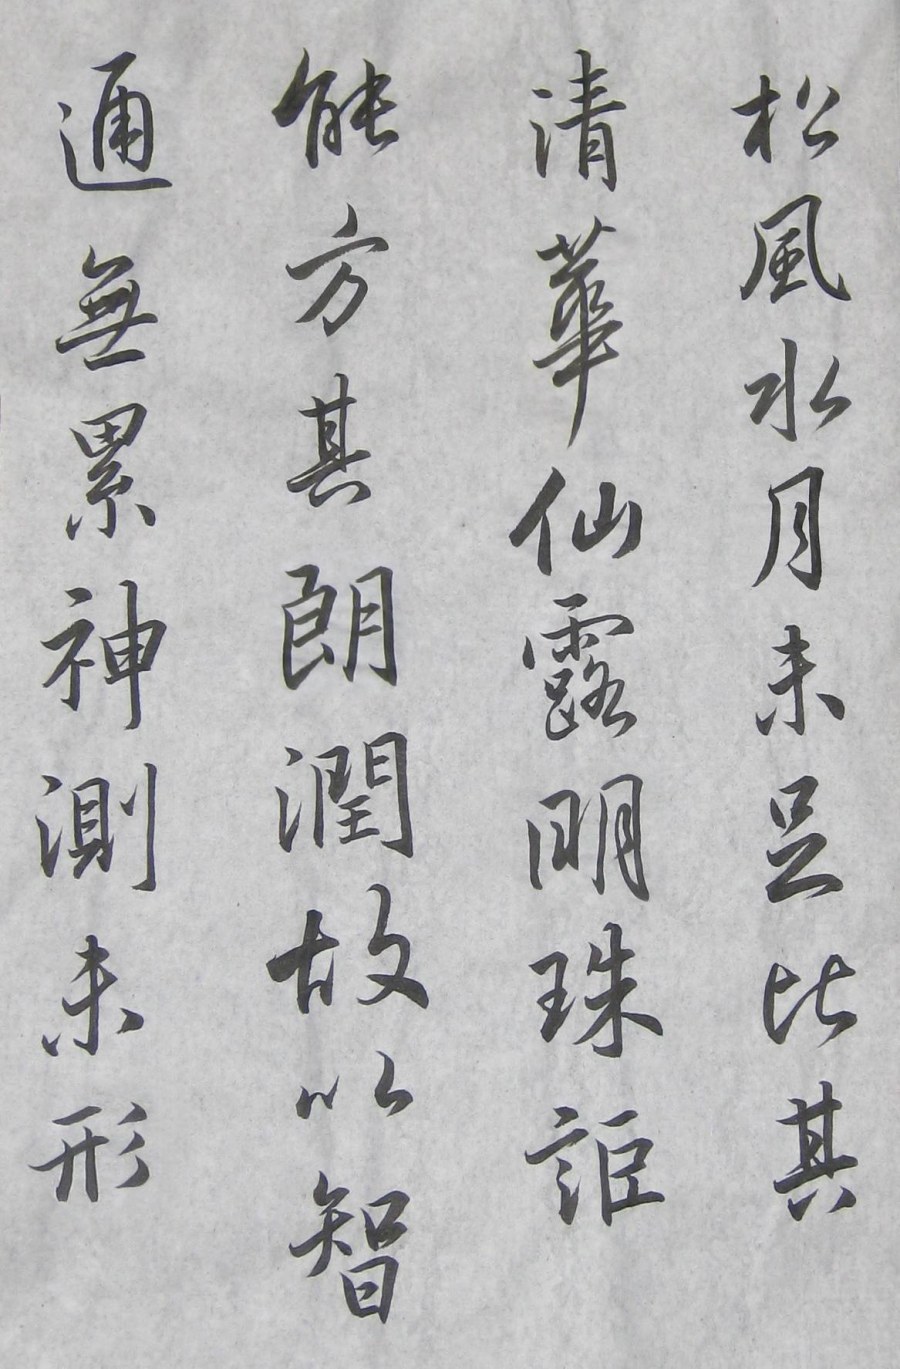 松風水月未足比其
清華仙露明珠詎
能方其朗潤故以智
通無累神測未形